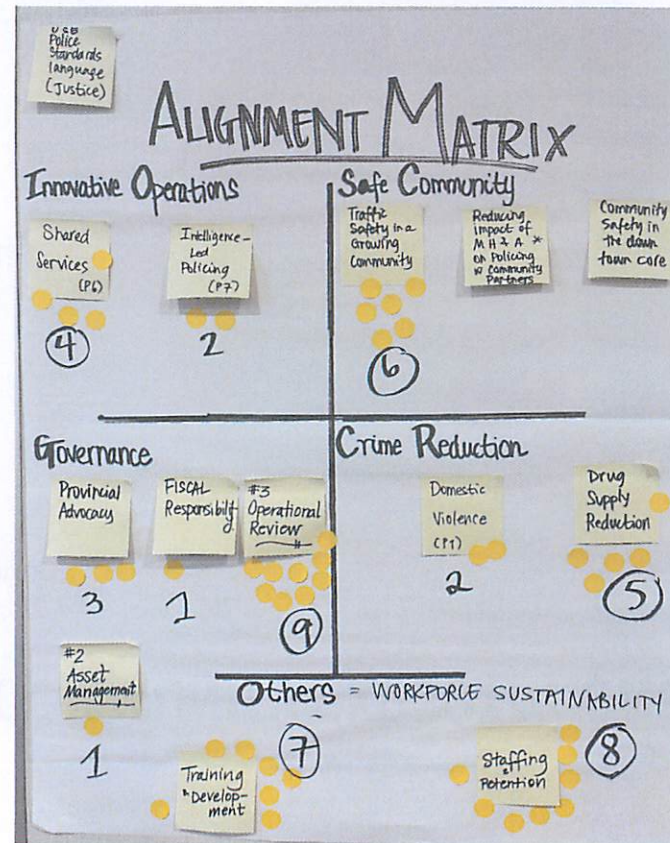 USE
Police
Standards
language
(Justice)
ALIGNMENT MATRIX
Innovative Operations
Shared
Services
(P6)
4
Intelligence-
Led
Policing
(P7)
2
Safe Community
Traffic
Safety in a
Growing
Community
6
Reducing
Impact of
MH & A *
on Policing
Community
Partners
Community
Safety in
the down
town core
Governance
Provincial
Advocacy
3
FISCAL
Responsibility
1
#3
Operational
Review
9
#2
Asset
Management
1
Crime Reduction
Domestic
Violence
(P1)
2
Drug
Supply
Reduction
5
Others = WORKFORCE SUSTAINABILITY
7
Training
& Develop-
ment
Staffing
&
Retention
8